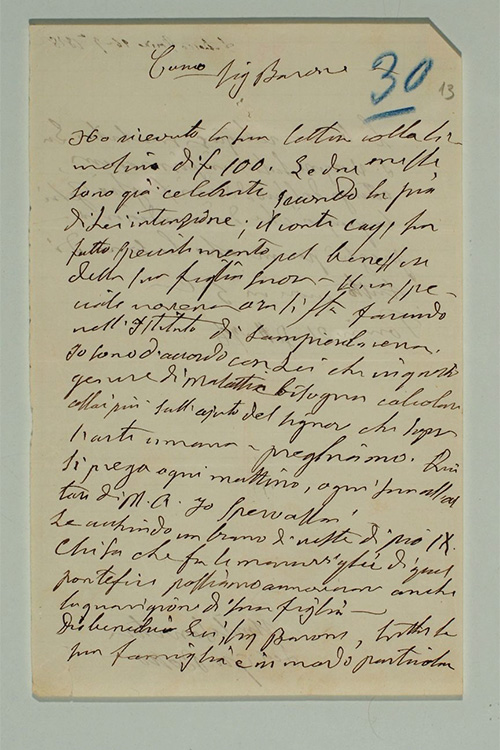 Car.mo Sig Barone
30
13
Ho ricevuto la sua lettera colla li-
mosina di f. 100. Le due messe
sono già celebrate secondo la pia
di Lei intenzione; il conte Cays ha
fatto specialmente pel benessere
della sua figlia nuora - Una spe-
ciale novena ora si sta facendo
nell'Istituto di Sampierdarena.
Io sono d'accordo con Lei che in questo
genere di malattia bisogna calcolare
assai più sull'ajuto del Signor che sopra
l'arte umana - preghiamo. Qui
si prega ogni mattino, ogni sera all'al
tare di M. A. Io spero assai
Le acchiudo un brano di veste di pio IX.
Chi sa che fra le maraviglie di quel
pontefice possiamo annoverare anche
la guarigione di sua figlia -
Dio benedica Lei, Sig Barone, tutta la
sua famiglia e in modo particolar